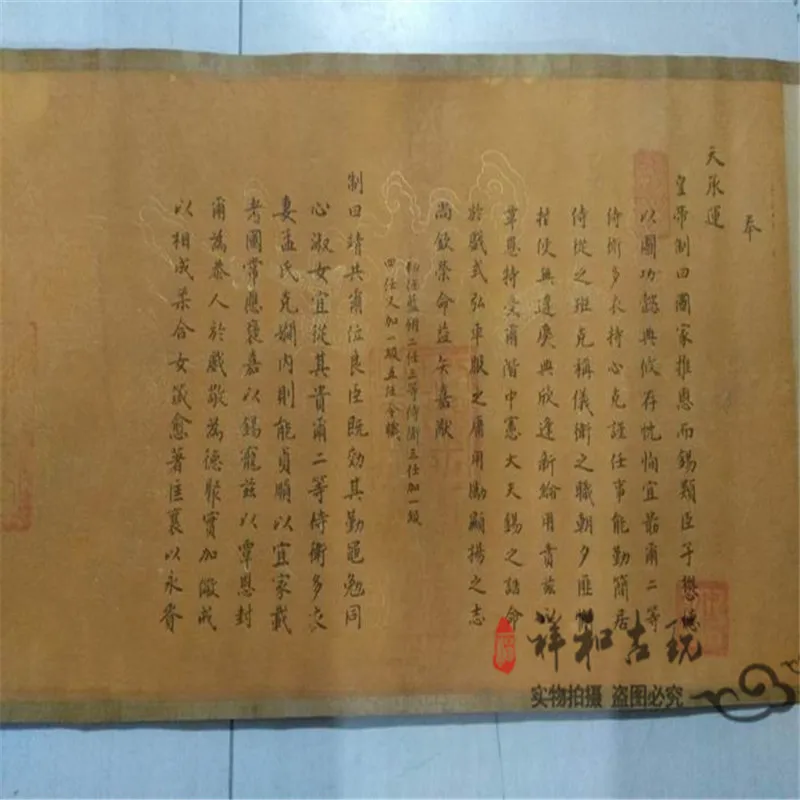 奉
天承運
皇帝制曰國家推恩而錫類臣子懋德
以圖功懿典攸存忱恂宜勗爾二等
侍衛多衣持心克謹任事能勤簡居
侍從之班克稱儀衛之職朝夕匪懈
指使無違慶典欣逢新綸用賁茲以
覃恩特受爾階中憲大夫錫之誥命
於戲式弘車服之庸用勵顯揚之志
尚欽榮命益矢嘉猷
初任藍翎二任三等侍衛三任加一級
四任又加一級五任今職
制曰靖共爾位良臣既効其勤黽勉同
心淑女宜從其貴爾二等侍衛多衣
妻孟氏克嫻內則能貞順以宜家載
考國常應褒嘉以錫寵茲以覃恩封
爾為恭人於戲敬為德聚實加儆戒
以相成柔合女箴愈著匡襄以永眷
祥和古玩
实物拍摄 盗图必究